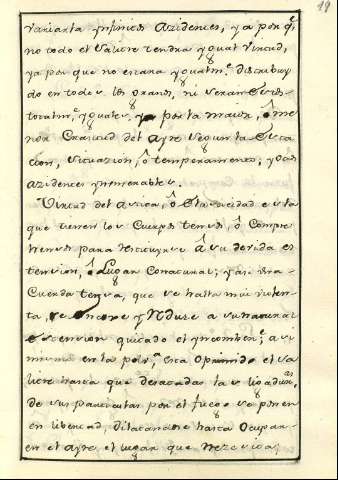 19
variarla ynfinitos Azidentes, ya por q.e
no todo el Salitre tendra ygual virtud,
ya por que no estara ygualm.e distribuy
do en todos los granos, ni seran
totalm.e yguales, ya por la maior, ó me
nor Crasitud del Ayre segun la Esta
cion, Situazion, ó temperamento, y otros
azidentes ynmemorables.
Virtud del ó Elasticidad es la
que tienen los Cuerpos tensos, ó Compre
hensos para restituyrse á su devida es
tension, ó Lugar Conatural; y asi una
Cuerda tensa, que se halla mui violen
ta, se encoge y Nduse a su natural
estension quitado el ynconben.e; a si
mismo en la polv.a esta Oprimido el sa
litre hasta que desatadas las ligaduras,
de sus particulas por el fuego se ponen
en libertad, dilatandose hasta Ocupar
en el Ayre el lugar que nezesitan